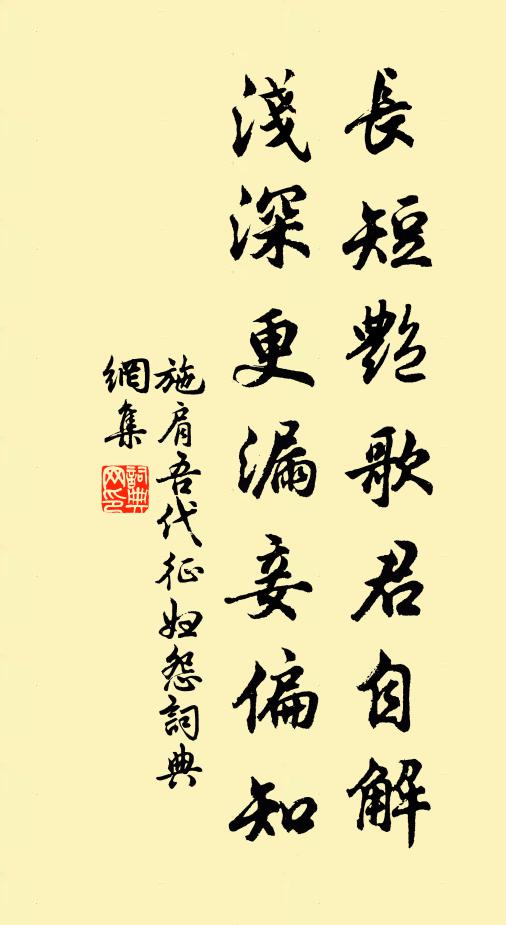 長短艷歌君自解
淺深更漏妾偏知
施肩吾代征婦怨詞典
網集
詞典
网印